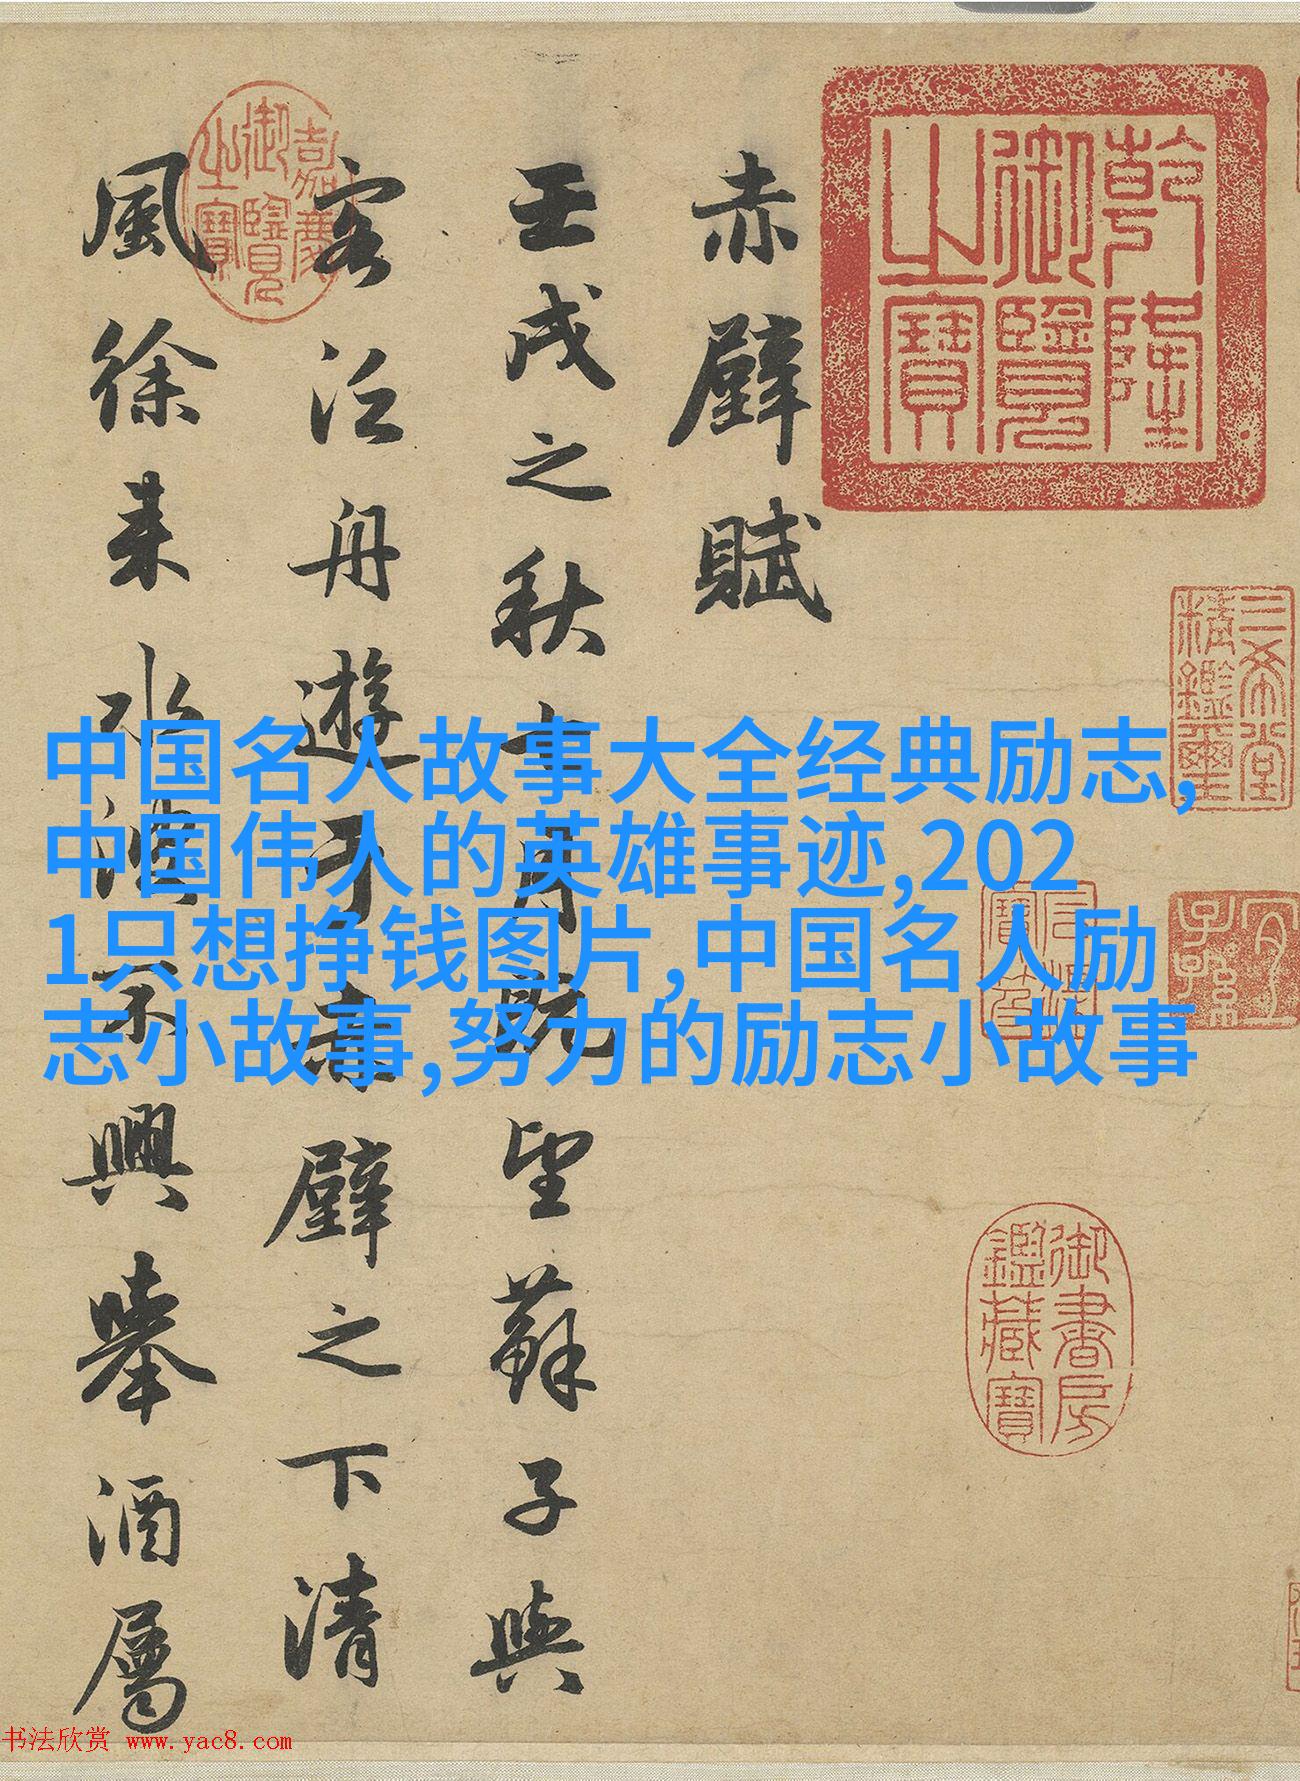 赤壁賦
壬戌之秋七月既望蘇子與
客泛舟遊于赤壁之下清
風徐来水波不興舉酒屬
乾隆御覽之寶
嘉慶御覽之寶
三希堂精鑑璽
宜子孫
御書房鑑藏寶
中国名人故事大全经典励志,
中国伟人的英雄事迹,202
1只想挣钱图片,中国名人励
志小故事,努力的励志小故事
书法欣赏 www.yac8.com